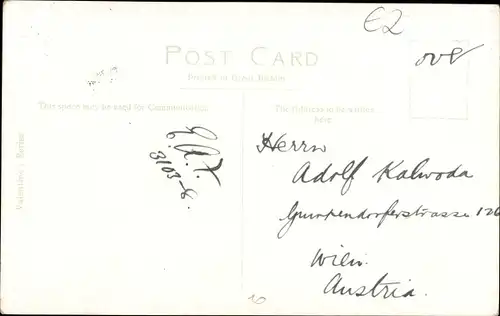 £2
008
POST CARD
Printed in Great Britain
This space may be used for Communication
The Address to be written
here
Valentines Series
E.A.T.
3103-6.
Herrn
Adolf Kalwoda
Gumpendorferstrasse 126
Wien
Austria.
6